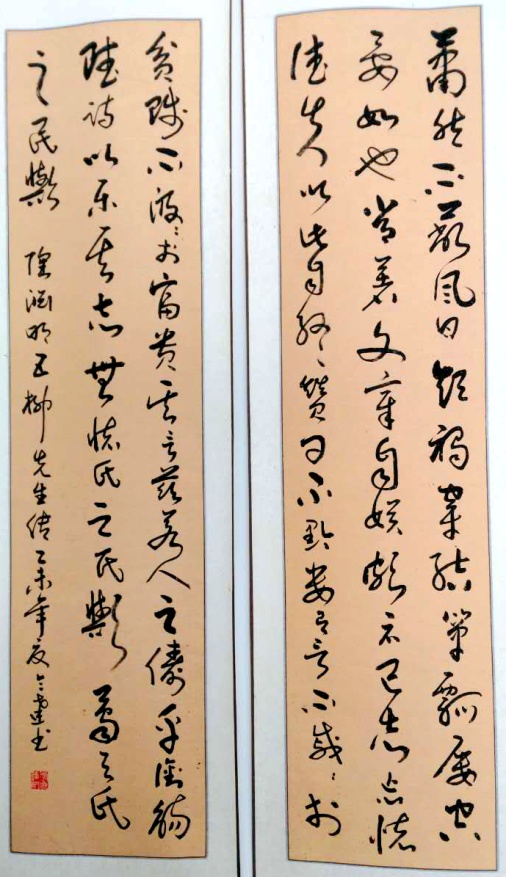 蕭然不蔽風日短褐穿結簞瓢屢空
晏如也常著文章自娱頗示己志忘懷
得失以此自終贊曰不黔婁有言不戚戚於
貧賤不汲汲於富貴其言兹若人之儔乎銜觴
賦詩以樂其志無懷氏之民歟葛天氏
之民歟 陶淵明五柳先生傳乙未年夏書